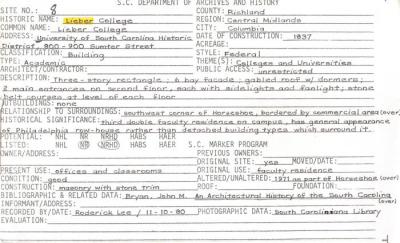 S.C. DEPARTMENT OF ARCHIVES AND HISTORY
SITE NO.: 8 COUNTY: Richland
HISTORIC NAME: Lieber College REGION: Central Midlands
COMMON NAME: Lieber College CITY: Columbia
ADDRESS: University of South Carolina Historic DATE OF CONSTRUCTION: 1837
District, 900 - 900 Sumter Street ACREAGE:
CLASSIFICATION: Building STYLE: Federal
TYPE: Academic THEME(S): Colleges and Universities
ARCHITECT/CONTRACTOR: PUBLIC ACCESS: unrestricted
DESCRIPTION: Three-story rectangle; 6 bay facade; gabled roof w/dormers;
2 main entrances on second floor, each with sidelights and fanlight; stone
belt courses at level of each floor
OUTBUILDINGS: none
RELATIONSHIP TO SURROUNDINGS: southwest corner of Horseshoe, bordered by commercial area (over)
HISTORICAL SIGNIFICANCE: third double faculty residence on campus, has general appearance
of Philadelphia row-house rather than detached building types which surround it.
POTENTIAL: NHL NR NRHD HABS HAER
LISTED: NHL NR NRHD HABS HAER S.C. MARKER PROGRAM
OWNER/ADDRESS: PREVIOUS OWNERS:
ORIGINAL SITE: yes MOVED/DATE:
PRESENT USE: offices and classrooms ORIGINAL USE: faculty residence
CONDITION: good ALTERED/UNALTERED: 1971 as part of Horseshoe (over)
CONSTRUCTION: masonry with stone trim ROOF: FOUNDATION:
BIBLIOGRAPHIC & RELATED DATA: Bryan, John M. An Architectural History of the South Carolina (over)
INFORMANT/ADDRESS:
RECORDED BY/DATE: Roderick Lee / 11-10-80 PHOTOGRAPHIC DATA: South Caroliniana Library
EVALUATION: